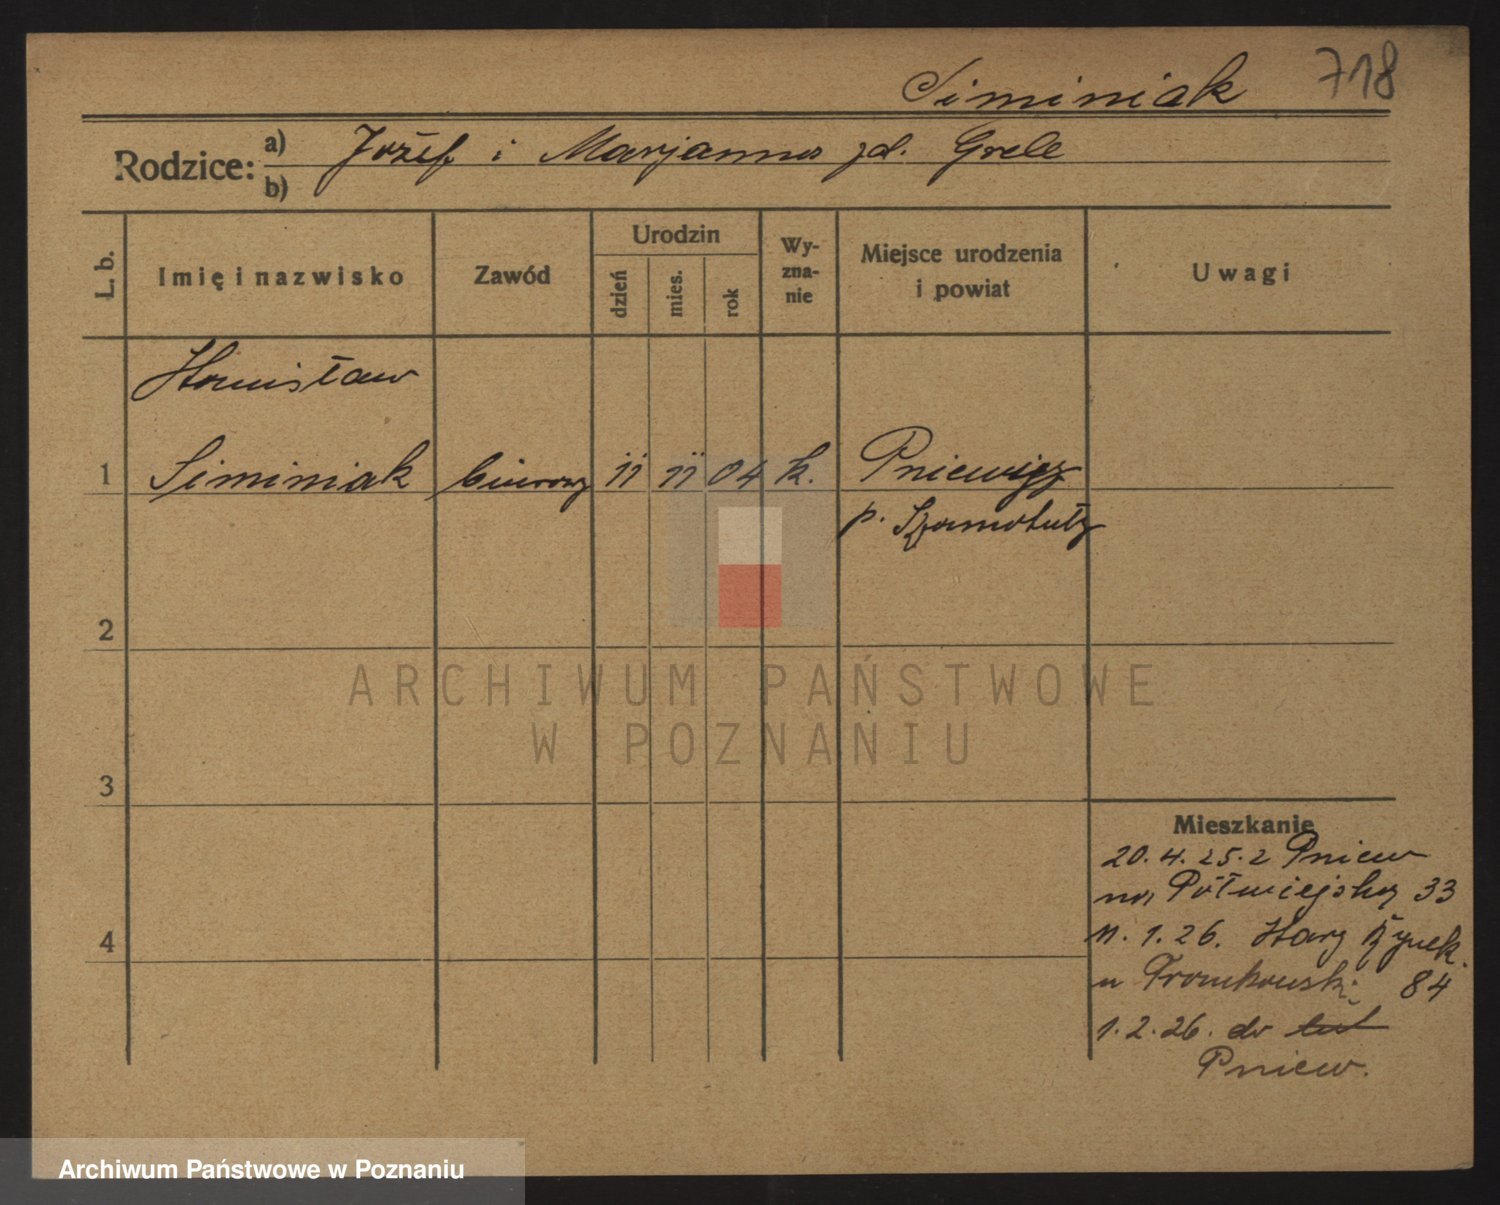 Siminiak 718
Rodzice: a) Józef i Marjanna zd. Grele
b)
L. b.
Imię i nazwisko
Zawód
Urodzin
dzień
mies.
rok
Wy-
zna-
nie
Miejsce urodzenia
i powiat
Uwagi
Stanisław
1 Siminiak biurowy 11 11 04 k. Pniewy
p. Szamotuły
2
3
4
Mieszkanie
20. 4. 25. z Pniew
na Półwiejską 33
11. 1. 26. Stary Rynek
u 84
1. 2. 26. do
Pniew.
ARCHIWUM PAŃSTWOWE
W POZNANIU
Archiwum Państwowe w Poznaniu